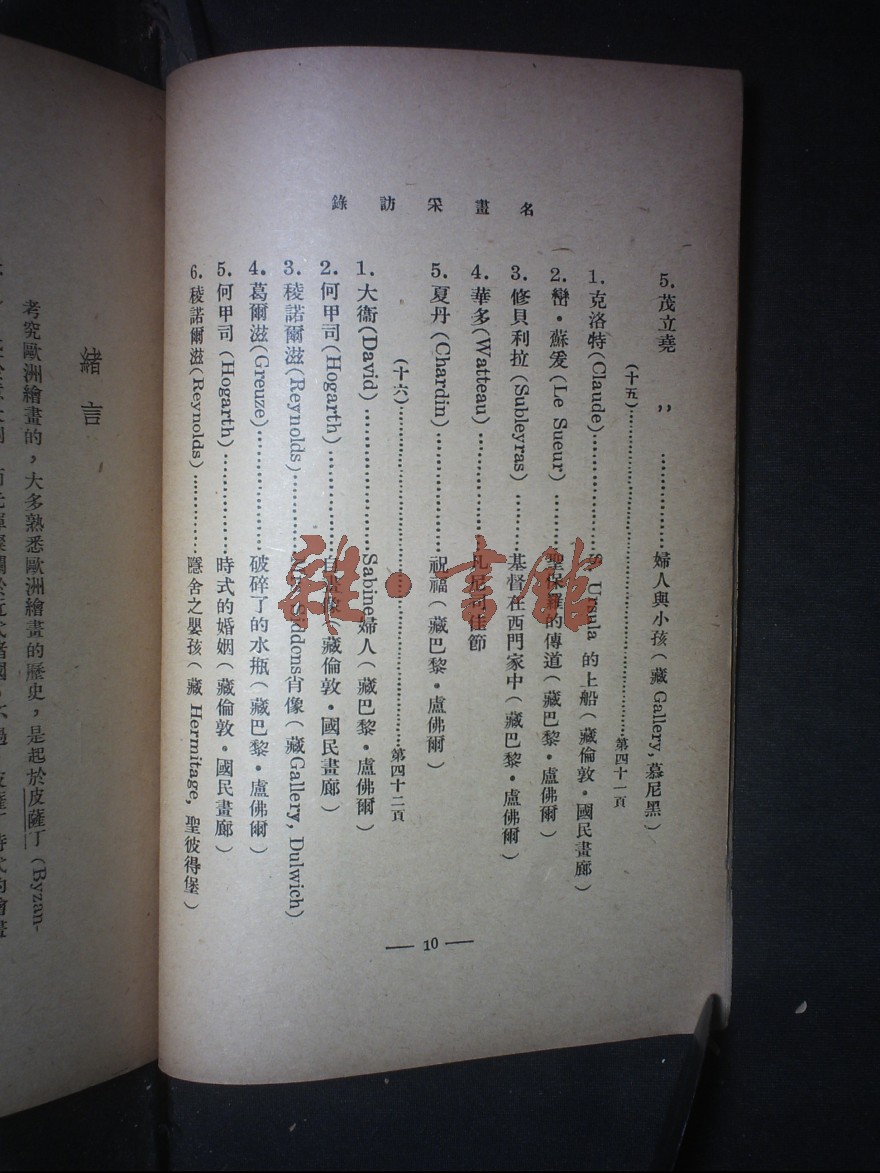 名畫采訪錄
5. 茂立堯 ,, ……………婦人與小孩(藏Gallery,慕尼黑)
(十五)……………第四十一頁
1. 克洛特(Claude)……………S. Ursula 的上船(藏倫敦•國民畫廊)
2. 巒•蘇爰(Le Sueur)………聖保羅的傳道(藏巴黎•盧佛爾)
3. 修貝利拉(Subleyras)………基督在西門家中(藏巴黎•盧佛爾)
4. 華多(Watteau)……………凡尼司佳節
5. 夏丹(Chardin)……………祝福(藏巴黎•盧佛爾)
(十六)……………第四十二頁
1. 大衞(David)……………Sabine婦人(藏巴黎•盧佛爾)
2. 何甲司(Hogarth)……………自畫像(藏倫敦•國民畫廊)
3. 稜諾爾滋(Reynolds)……………Siddons肖像(藏Gallery, Dulwich)
4. 葛爾滋(Greuze)……………破碎了的水瓶(藏巴黎•盧佛爾)
5. 何甲司(Hogarth)……………時式的婚姻(藏倫敦•國民畫廊)
6. 稜諾爾滋(Reynolds)……………隱舍之嬰孩(藏 Hermitage, 聖彼得堡)
— 10 —
緒言
考究歐洲繪畫的,大多熟悉歐洲繪畫的歷史,是起於皮薩丁(Byzan-
雜•書館